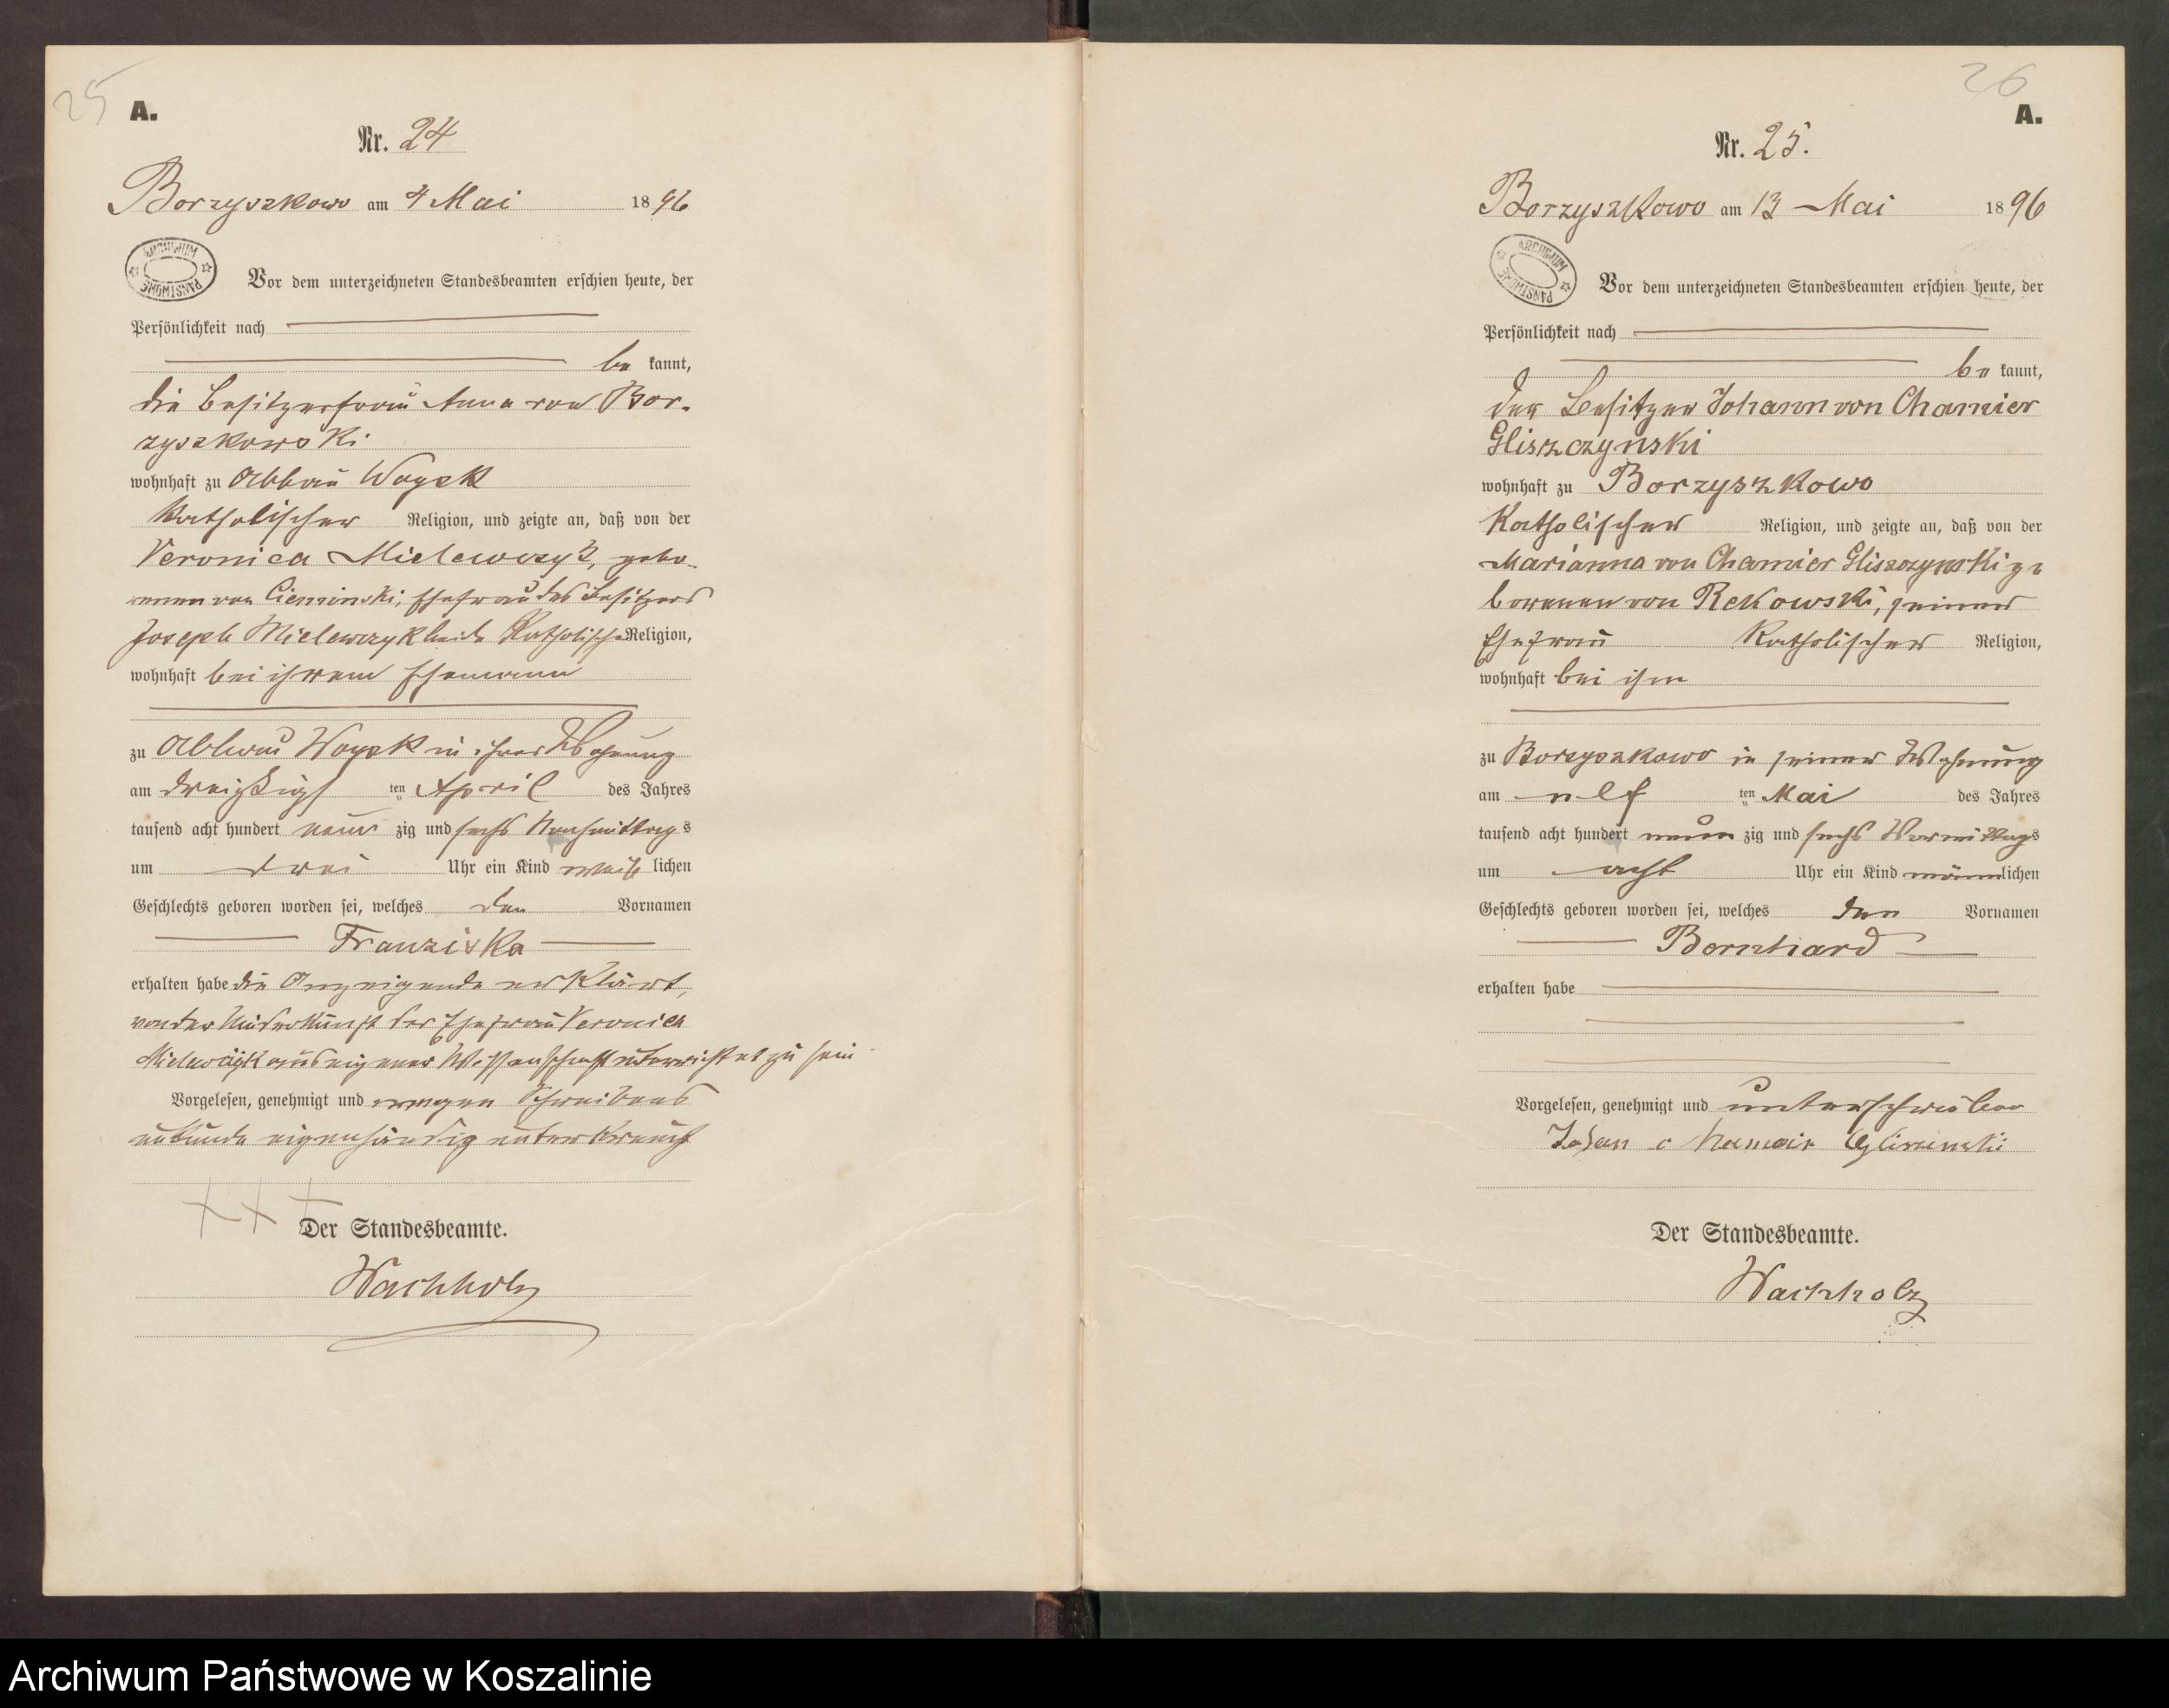 25
A.
Nr. 24
Borzyszkowo am 4 Mai 1896
ARCHIWUM PAŃSTWOWE
Vor dem unterzeichneten Standesbeamten erschien heute, der
Persönlichkeit nach
be kannt,
die Besitzerfrau Anna von Bor-
zyszkowski
wohnhaft zu Abbau Woysk
katholischer Religion, und zeigte an, daß von der
Veronica Mielewczyk, gebo-
renen von Cieminski, Ehefrau des Besitzers
Joseph Mielewczyk beide Katholischer Religion,
wohnhaft bei ihrem Ehemann
zu Abbau Woysk in ihrer Wohnung
am dreißigs ten April des Jahres
tausend acht hundert neun zig und sechs Nachmittags
um drei Uhr ein Kind weib lichen
Geschlechts geboren worden sei, welches den Vornamen
Franziska
erhalten habe die Anzeigende erklärt,
von der Niederkunft der Ehefrau Veronica
Mielewczyk aus eigener Wissenschaft unterrichtet zu sein
Vorgelesen, genehmigt und wegen Schreibens
unkunde eigenhändig unterkreuzt
+++
Der Standesbeamte.
Wachholz
26
A.
Nr. 25.
Borzyszkowo am 13 Mai 1896
ARCHIWUM PAŃSTWOWE
Vor dem unterzeichneten Standesbeamten erschien heute, der
Persönlichkeit nach
be kannt,
der Besitzer Johann von Chamier
Gliszczynski
wohnhaft zu Borzyszkowo
Katholischer Religion, und zeigte an, daß von der
Marianna von Chamier Gliszczynski ge
borenen von Rekowski, seiner
Ehefrau Katholischer Religion,
wohnhaft bei ihm
zu Borzyszkowo in seiner Wohnung
am elf ten Mai des Jahres
tausend acht hundert neun zig und sechs Vormittags
um acht Uhr ein Kind männlichen
Geschlechts geboren worden sei, welches den Vornamen
Bernhard
erhalten habe
Vorgelesen, genehmigt und unterschrieben
Johan
Der Standesbeamte.
Wachholz
Archiwum Państwowe w Koszalinie